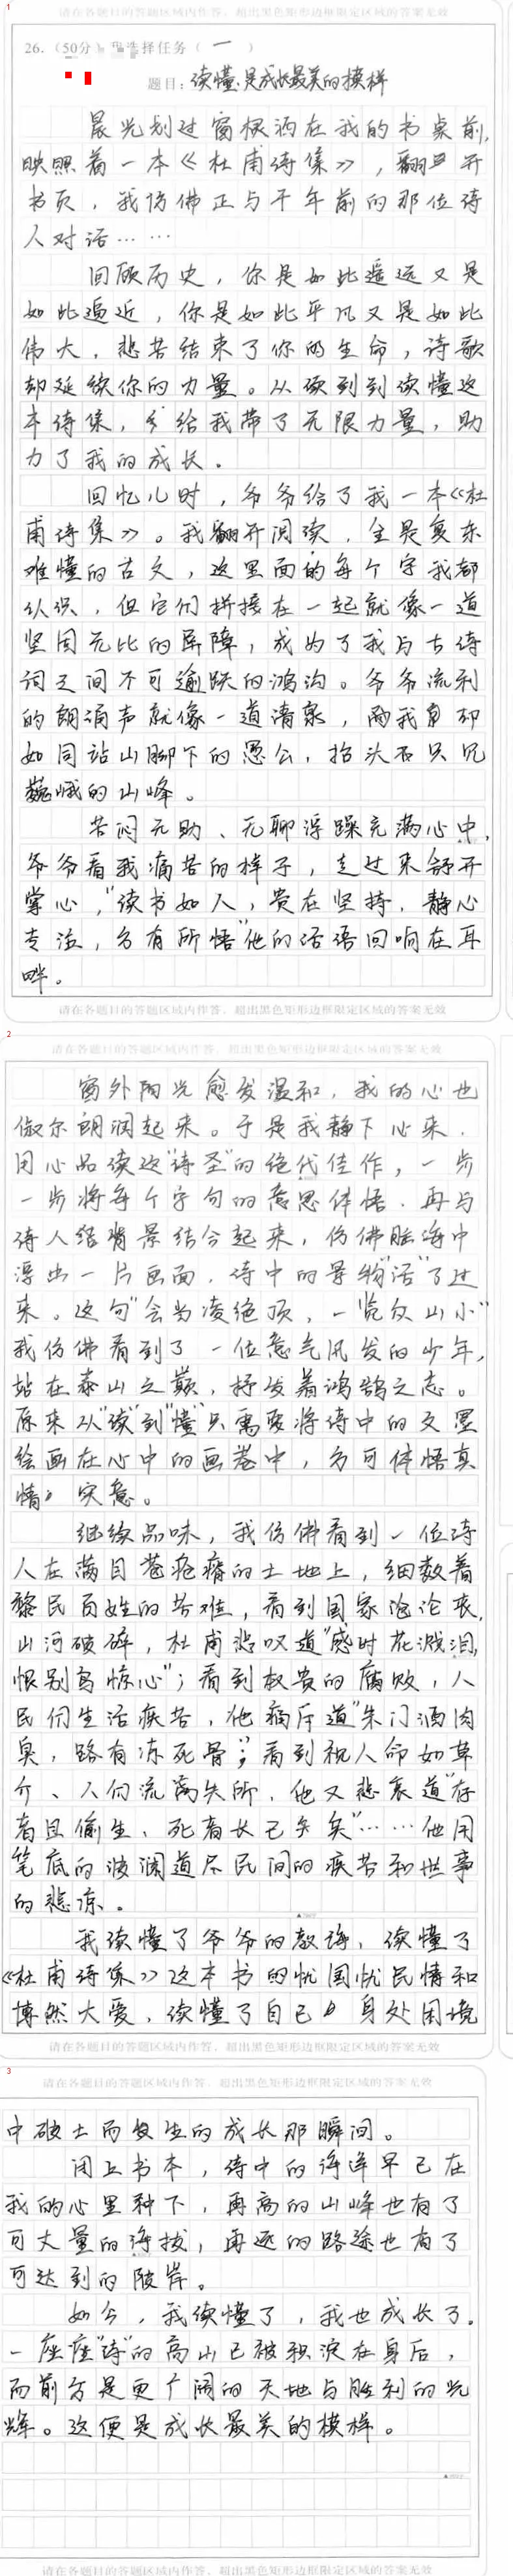 1
请在各题目的答题区域内作答，超出黑色矩形边框限定区域的答案无效
26.（50分）我选择任务（ 一 ）
题目：读懂是成长最美的模样
晨光划过窗棂洒在我的书桌前，
映照着一本《杜甫诗集》，翻开
书页，我仿佛正与千年前的那位诗
人对话……
回顾历史，你是如此遥远又是
如此逼近，你是如此平凡又是如此
伟大，悲苦结束了你的生命，诗歌
却延续你的力量。从读到到读懂这
本诗集，给我带了无限力量，助
力了我的成长。
回忆儿时，爷爷给了我一本《杜
甫诗集》。我翻开阅读，全是复杂
难懂的古文，这里面的每个字我都
认识，但它们拼接在一起就像一道
坚固无比的屏障，成为了我与古诗
词之间不可逾跃的鸿沟。爷爷流利
的朗诵声就像一道清泉，而我却
如同站山脚下的愚公，抬头只见
巍峨的山峰。
苦闷无助、无聊浮躁充满心中，
爷爷看我痛苦的样子，走过来舒开
掌心，“读书如人，贵在坚持，静心
专注，方有所悟”他的话语回响在耳
畔。
请在各题目的答题区域内作答，超出黑色矩形边框限定区域的答案无效
2
请在各题目的答题区域内作答，超出黑色矩形边框限定区域的答案无效
窗外阳光愈发温和，我的心也
俶尔朗润起来。于是我静下心来，
用心品读这“诗圣”的绝代佳作，一步
一步将每个字句的意思体悟，再与
诗人背景结合起来，仿佛脑海中
浮出一片画面，诗中的景物“活”了过
来。这句“会当凌绝顶，一览众山小”
我仿佛看到了一位意气风发的少年，
站在泰山之巅，抒发着鸿鹄之志。
原来从“读”到“懂”只需要将诗中的文墨
绘画在心中的画卷中，方可体悟真
情实意。
继续品味，我仿佛看到一位诗
人在满目苍疮瘠的土地上，细数着
黎民百姓的苦难，看到国家沦沦丧，
山河破碎，杜甫悲叹道“感时花溅泪，
恨别鸟惊心”；看到权贵的腐败，人
民们生活疾苦，他痛斥道“朱门酒肉
臭，路有冻死骨”；看到视人命如草
介、人们流离失所，他又悲哀道“存
者且偷生，死者长已矣”……他用
笔底的波澜道尽民间的疾苦和世事
的悲凉。
我读懂了爷爷的教诲，读懂了
《杜甫诗集》这本书的忧国忧民情和
博然大爱，读懂了自己身处困境
请在各题目的答题区域内作答，超出黑色矩形边框限定区域的答案无效
3
请在各题目的答题区域内作答，超出黑色矩形边框限定区域的答案无效
中破土而发生的成长那瞬间。
闭上书本，诗中的谆谆早已在
我的心里种下，再高的山峰也有了
可丈量的海拔，再远的路途也有了
可达到的陂岸。
如今，我读懂了，我也成长了。
一座座“诗”的高山已被积淀在身后，
而前方是更广阔的天地与胜利的光
辉。这便是成长最美的模样。
请在各题目的答题区域内作答，超出黑色矩形边框限定区域的答案无效